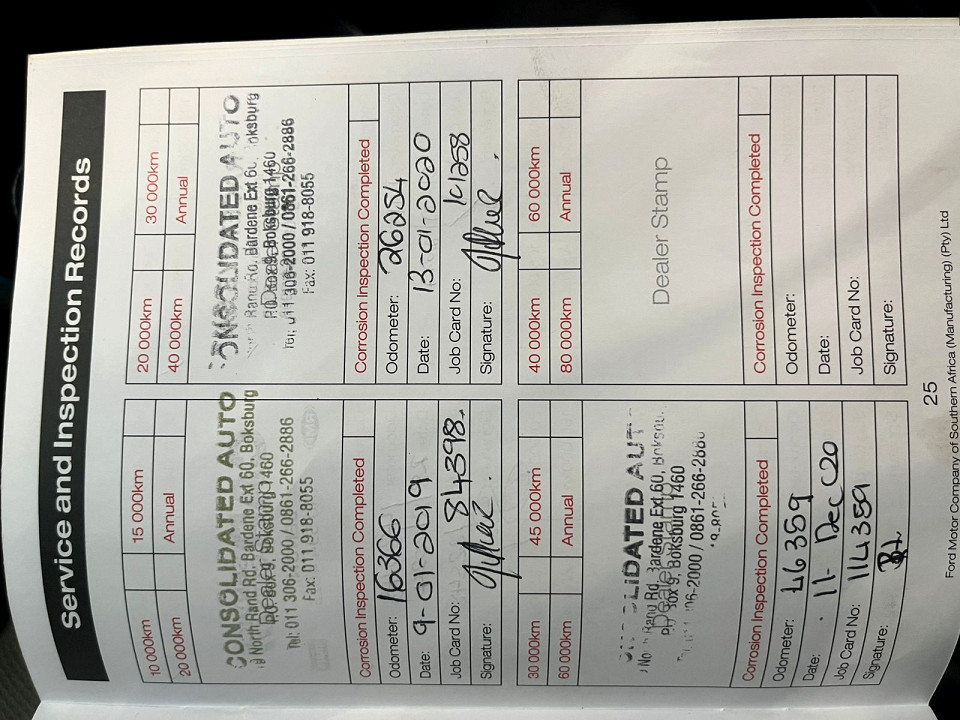 Service and Inspection Records
10 000km 15 000km
20 000km Annual
CONSOLIDATED AUTO
North Rand Rd, Bardene Ext 60, Boksburg
P.O. Box 9, Boksburg 1460
Dealer Stamp
Tel: 011 306-2000 / 0861-266-2886
Fax: 011 918-8055
Corrosion Inspection Completed
Odometer: 16366
Date: 9-01-2019
Job Card No: 84398
Signature:
20 000km 30 000km
40 000km Annual
CONSOLIDATED AUTO
Rand Rd, Bardene Ext 60, Boksburg
P.O. Box 9, Boksburg 1460
Tel: 011 306-2000 / 0861-266-2886
Fax: 011 918-8055
Corrosion Inspection Completed
Odometer: 26254
Date: 13-01-2020
Job Card No: 101258
Signature:
30 000km 45 000km
60 000km Annual
LIDATED AUT
North Rand Rd, Bardene Ext 60, Boksbu
Dealer
Box 9, Boksburg 1460
306-2000 / 0861-266-2886
Corrosion Inspection Completed
Odometer: 46389
Date: 11-Dec 20
Job Card No: 114359
Signature:
40 000km 60 000km
80 000km Annual
Dealer Stamp
Corrosion Inspection Completed
Odometer:
Date:
Job Card No:
Signature:
25
Ford Motor Company of Southern Africa (Manufacturing) (Pty) Ltd